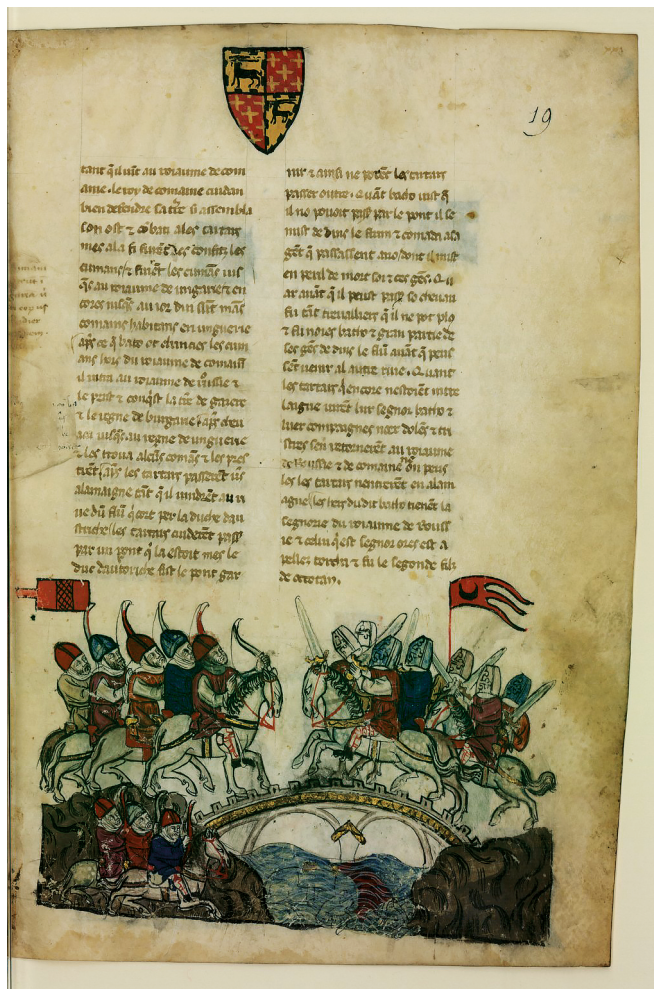 19
tant q̃ il uīt au roiaume de com
anie. le roy de comaine cuidan
bien defendre sa tr̃e si assembla
son ost & cōbati a les tartars
mes ala fi furēt les confitz les
cumans & fuirēt les cumās ius
q̃s au roiaume de ungarie & en
cores iusq̃s au ior dui sūt
comains habitans en unguerie
ap̃s ce q̃ bato ot chacies les cum
ans hors du roiaume de comaīs
il uint au roiaume de roussie &
le prist & conq̃st la tr̃e de gazere
& le regne de burgarie & ap̃s cheu
aca iusq̃s au regne de unguerie
& les troua alcūs comās & les pres
ap̃s les tartars passerēt ūs
alamaigne tāt q̃ il uindrēt au ri
ue dū flū q̃ cort per la duche dau
striche les tartars cuiderēt pass̃
par un pont q̃ la estoit mes le
duc dautoriche fist le pont gar
nir & ainsi ne potēt les tartars
passer outre. Quāt bacto uist q̃
il ne pouoit pass̃ par le pont il se
mist de dins le flum & comāda a sa
gēt q̃ passassent dont il mist
en peril de mort soi & ces gēs. Qu
ar auāt q̃ il peust pass̃ so cheuau
fu tāt trauailliers q̃ il ne pot plo
& fu noies bacto & gran partie de
ses gēs de dins le flū auāt q̃ peus
sēt uenir al autre riue. Quant
les tartars q̃ encore nestoiēt intre
laigue uirēt lur segnor bacto &
luer compaignes noer dolēs & tri
stres sen retornerēt au roiaume
de Roussie & de comaine on peus
les les tartars nentrerēt en alam
agne les heirs du dit bacto tienēt la
segnorie du roiaume de Rouss
ie & celui q̃ est segnor ores est a
peller & fu le segonde filz
de octotan.